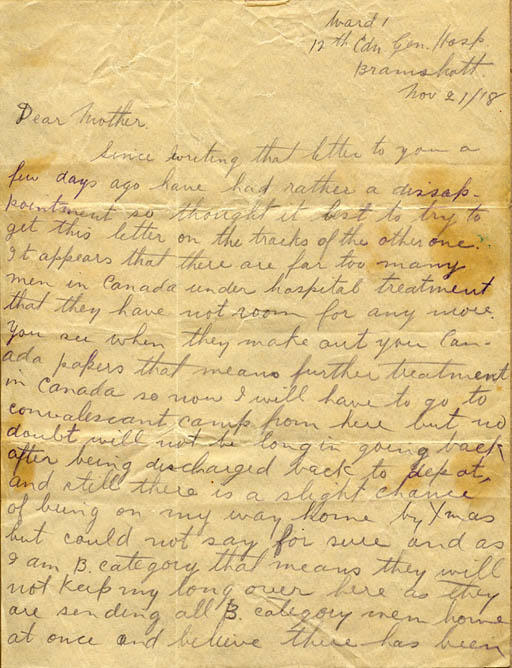 Ward 1
12th Cdn Gen. Hosp
Bramshott
Nov 21/18
Dear Mother.
Since writing that letter to you a
few days ago have had rather a dissap-
pointment so thought it best to try to
get this letter on the tracks of the other one.
It appears that there are far too many
men in Canada under hospital treatment
that they have not room for any more.
You see when they make out your Can-
ada papers that means further treatment
in Canada so now I will have to go to
convalescant camp from here but no
doubt will not be long in going back
after being discharged back to depot,
and still there is a slight chance
of being on my way home by Xmas
but could not say for sure and as
I am B. category that means they will
not keep my long over here as they
are sending all B. category men home
at once and believe there has been